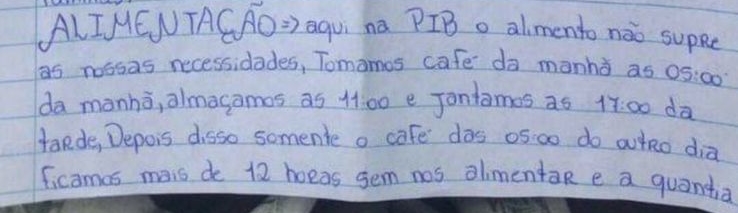 ALIMENTAÇÃO => aqui na PIB o alimento não supre
as nossas necessidades, Tomamos café da manhã as 05:00
da manhã, almaçamos as 11:00 e Jantamos as 17:00 da
tarde, Depois disso somente o café das 05:00 do outro dia
ficamos mais de 12 horas sem nos alimentar e a quantia